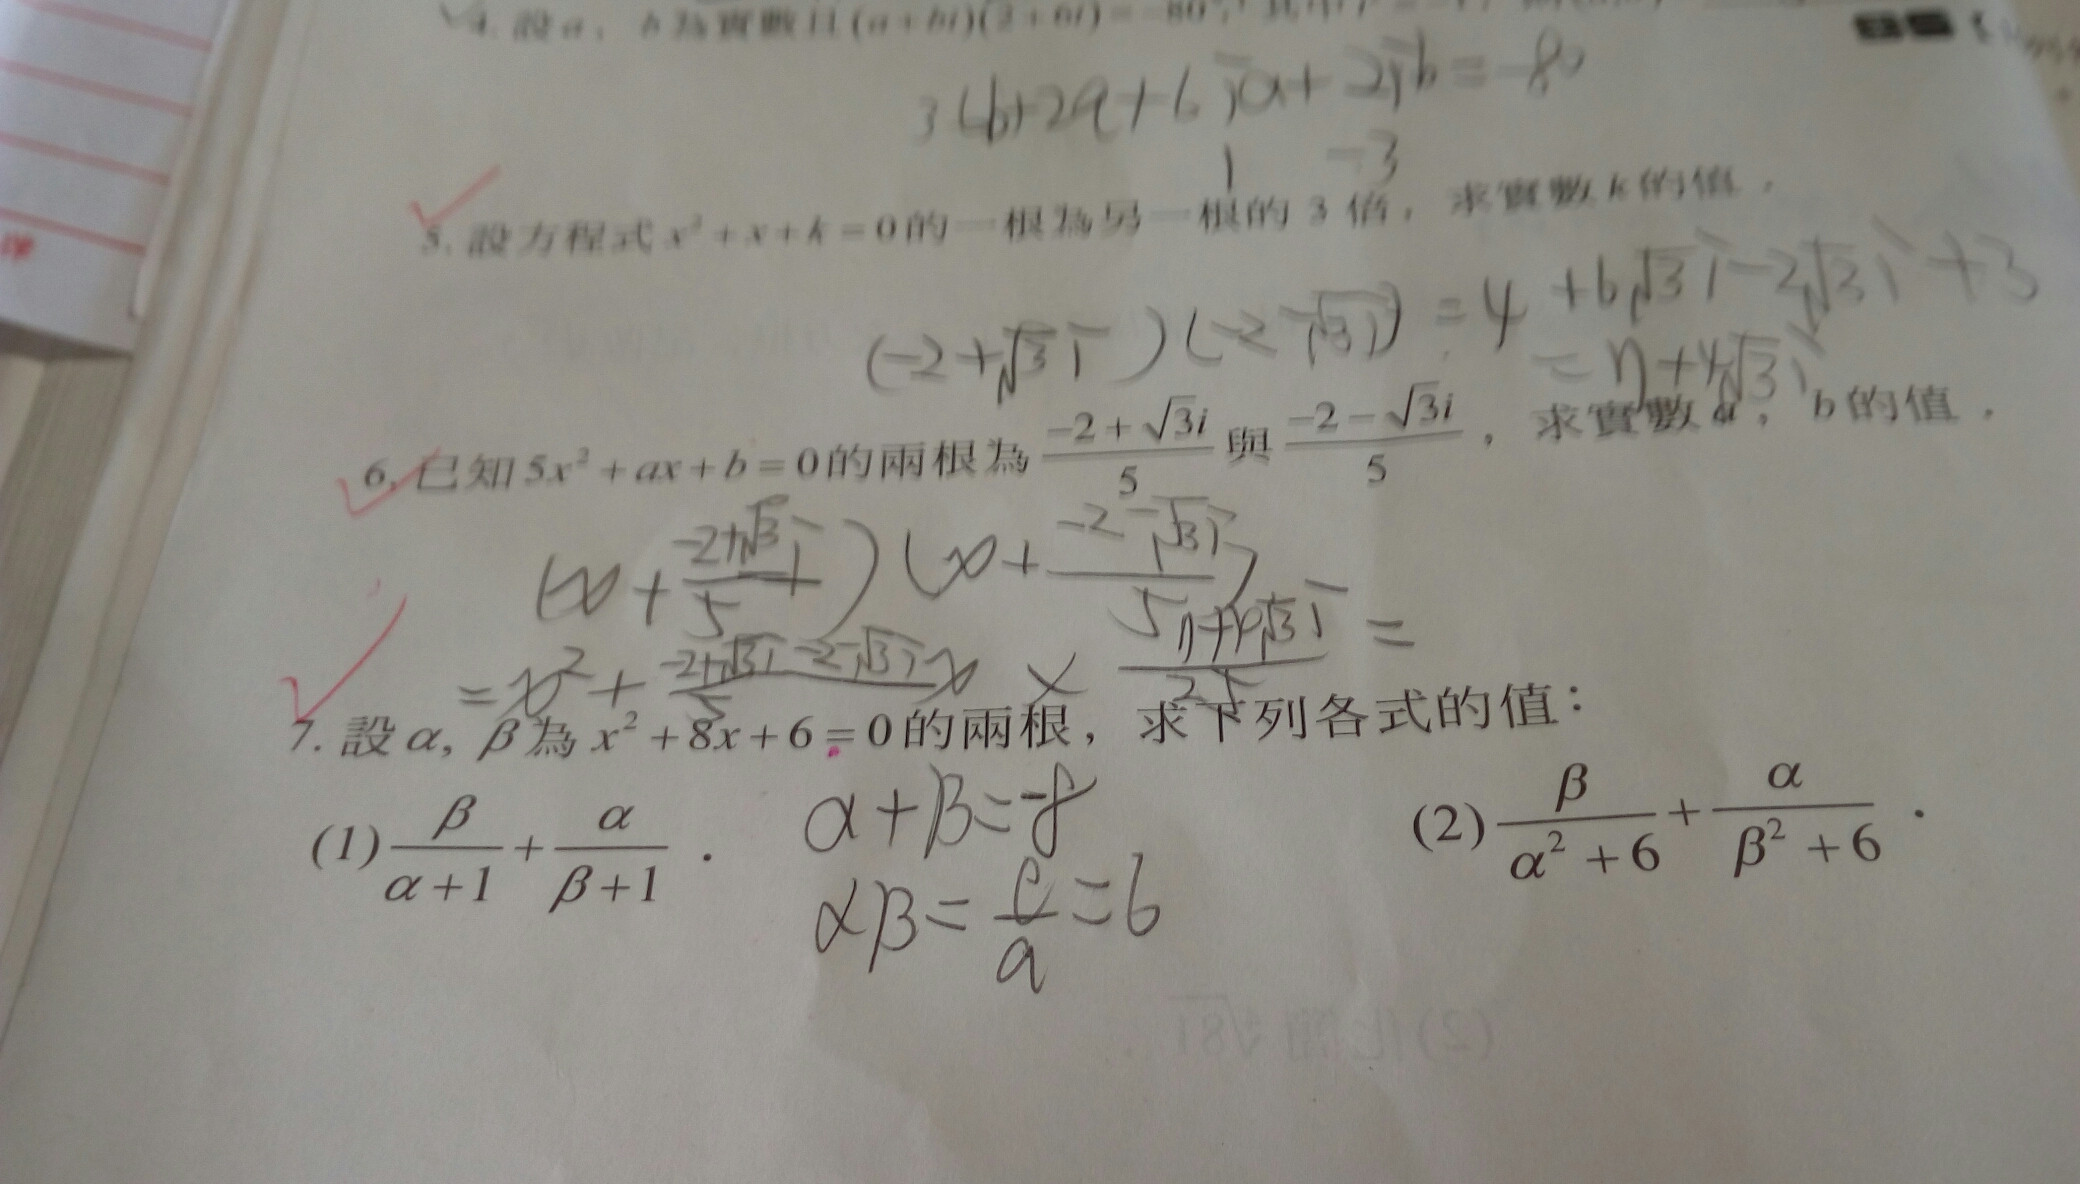 4. 設 a, b 為實數且(a+bi)(2+6i)=-80,
36b+2a+6ia+2ib=-80
1 -3
5. 設方程式 x²+x+k=0的一根為另一根的 3 倍，求實數 k 的值．
(-2+√3i)(-2-√3i)=4+6√3i-2√3i+3
=7+4√3i
6. 已知 5x²+ax+b=0的兩根為 (-2+√3i)/5 與 (-2-√3i)/5，求實數 a, b 的值．
(x+(-2+√3i)/5)(x+(-2-√3i)/5)
=x²+(-2+√3i-2-√3i)/5 x × (7+4√3i)/25 =
7. 設 α, β 為 x²+8x+6=0的兩根，求下列各式的值：
(1) β/(α+1) + α/(β+1)．
α+β=-8
αβ=c/a=6
(2) β/(α²+6) + α/(β²+6)．